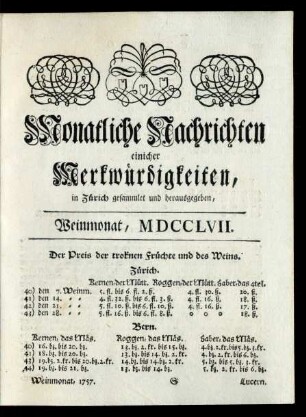 Monatliche Nachrichten
einicher
Merkwürdigkeiten,
in Zürich gesammlet und herausgegeben,
Weinmonat, MDCCLVII.
Der Preis der troknen Früchte und des Weins.
Zürich.
Kernen der Mütt. Roggen, der Mütt. Haber, das 4tel.
40) den 7. Weinm. 5. fl. bis 6. fl. 2. ß. 4. fl. 30. ß. 20. ß.
41) den 14. 4. fl. 32. ß. bis 6. fl. 3. ß. 4. fl. 16. ß. 18. ß.
42) den 21. 5. fl. 10. ß. bis 6. fl. 10. ß. 4. fl. 16. ß. 17. ß.
43) den 28. 5. fl. 16. ß. bis 6. fl. 8. ß. o o o 18. ß.
Bern.
Kernen, das Mäs. Roggen, das Mäs. Haber, das Mäs.
40) 16. bz. bis 20. bz. 13. bz. 2. kr. bis 15. bz.
41) 18. bz. bis 20. bz. 13. bz. bis 14. bz. 2. kr.
44) 19. bz. bis 21. bz. 13. bz. bis 14. bz.
Weinmonat. 1757. Lucern.